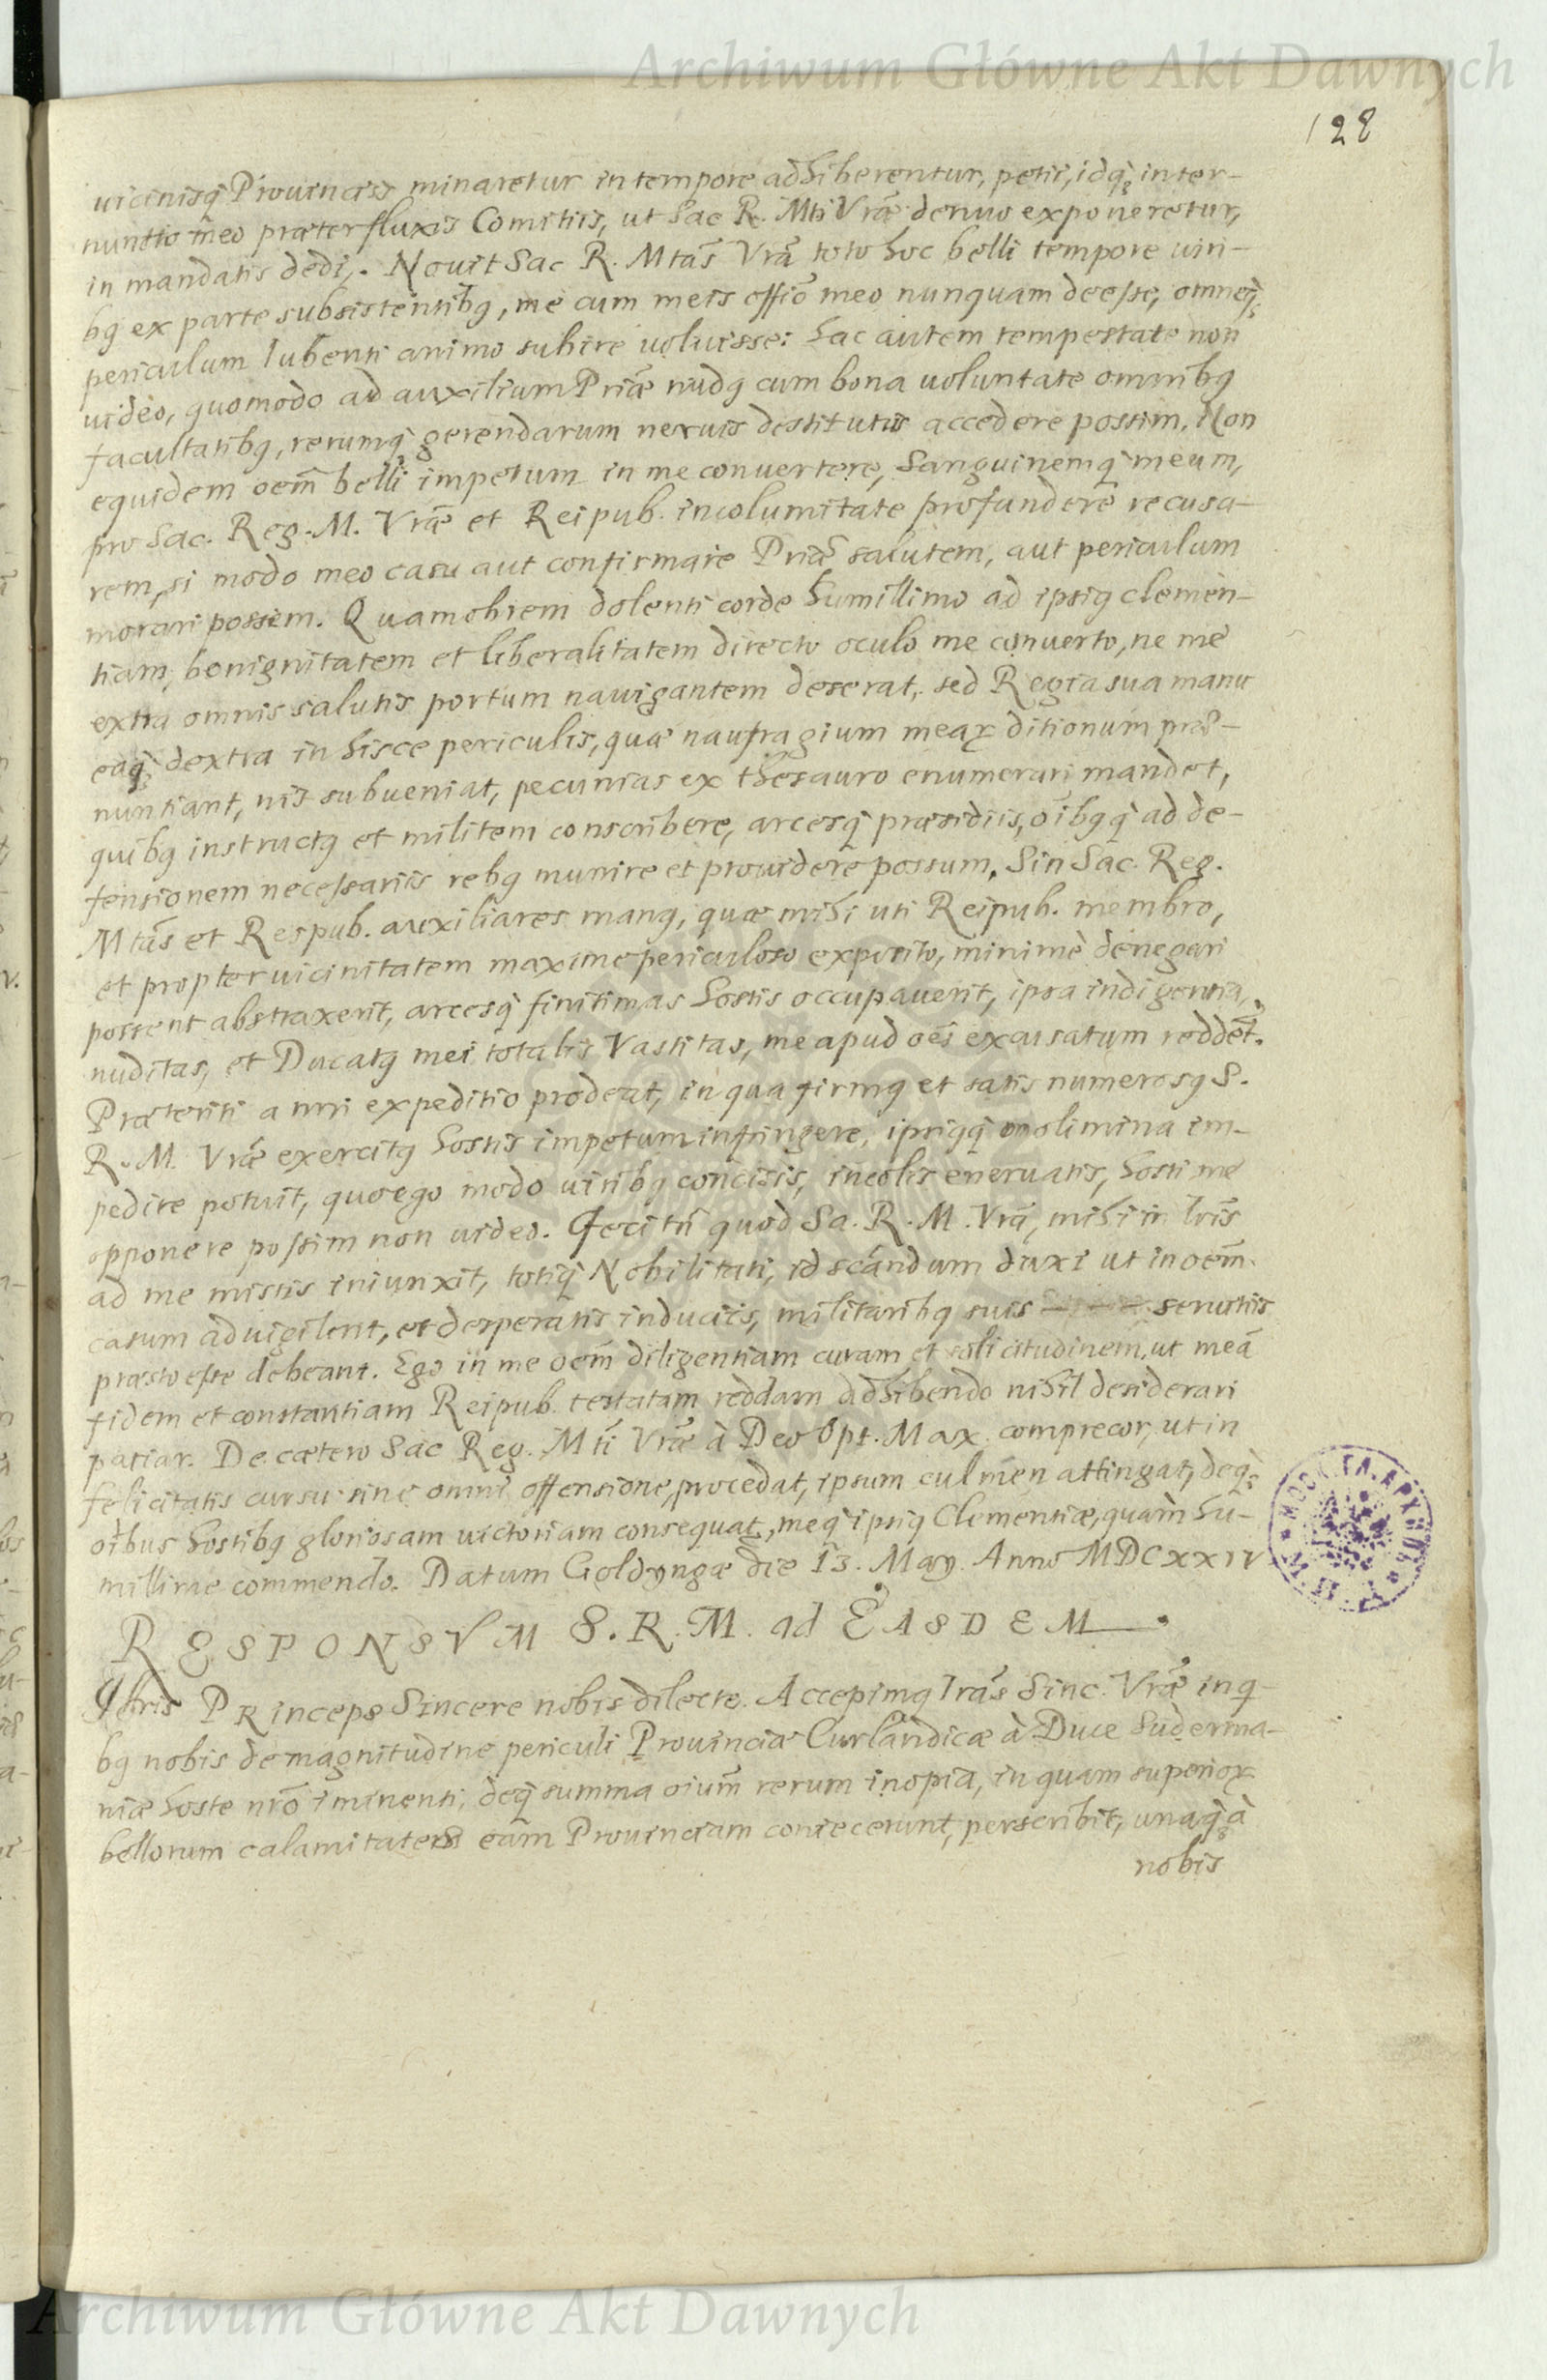 Archiwum Główne Akt Dawnych
128
uicinisq; Prouinciis minaretur in tempore adhiberentur, petii, idq; inter-
nuntio meo præterfluxis Comitiis, ut Sac R. Mti Vræ denuo exponeretur,
in mandatis dedi. Nouit Sac R. Mtas Vra toto hoc belli tempore uiri-
bq ex parte subsistentibq, me cum meis offio meo nunquam deesse, omneq;
periculum lubenti animo subire uoluisse: hac autem tempestate non
uideo, quomodo ad auxilium Priæ nudq cum bona uoluntate omnibq
facultatibq, rerumq; gerendarum neruis destitutus accedere possim. Non
equidem oem belli impetum in me conuertere, Sanguinemq; meum,
pro Sac. Reg. M. Vræ et Reipub. incolumitate profundere recusa-
rem, si modo meo casu aut confirmare Priæ salutem, aut periculum
morari possem. Quamobrem dolenti corde humillimo ad ipsiq clemen-
tiam, benignitatem et liberalitatem directo oculo me conuerto, ne me
extra omnis salutis portum nauigantem deserat, sed Regia sua manu
eaq; dextra in hisce periculis, quæ naufragium mear ditionum præ-
nuntiant, nis subueniat, pecunias ex thesauro enumerari mandet,
quibq instructq et militem conscribere, arcesq; præsidiis, oibqq; ad de-
fensionem necessariis rebq munire et prouidere possum. Sin Sac. Reg.
Mtas et Respub. auxiliares manq, quæ mihi uti Reipub. membro,
et propter uicinitatem maxime periculoso exposito, minimè denegari
possent abstraxerit, arcesq; finitimas hostis occupauerit, ipsa indigentia,
nuditas, et Ducatq mei totalis Vastitas, me apud oes excusatum reddet.
Præteriti anni expeditio prodeat, in qua firmq et satis numerosq S.
R. M. Vræ exercitq hostis impetum infringere, ipsiqq; molimina im-
pedire potuit, quo ego modo uiribq concisis, incolis eneruatis, hosti me
opponere possim non uideo. Feci tn quod Sa. R. M. Vra, mihi in lris
ad me missis iniunxit, totiq; Nobilitati, id scandum duxi ut in oem
casum aduigilent, et desperatis induciis, militaribq suis seruitiis
præsto esse debeant. Ego in me oem diligentiam curam et solicitudinem, ut mea
fidem et constantiam Reipub. testatam reddam adhibendo nihil desiderari
patiar. De cætero Sac Reg. Mti Vræ à Deo Opt. Max. comprecor, ut in
felicitatis cursu sine omni offensione, procedat, ipsum culmen attingat, deq;
oibus hostibq gloriosam uictoriam consequat, meq; ipsiq Clementiæ, quàm hu-
millime commendo. Datum Goldyngæ die 13. May. Anno MDCXXIV
RESPONSVM S. R. M. ad EASDEM
Illris PRinceps Sincere nobis dilecte. Accepimq lras Sinc. Vræ in q-
bq nobis de magnitudine periculi Prouinciæ Curlandicæ à Duce Suderma-
niæ hoste nro iminenti, deq; summa oium rerum inopia, in quam superior
bellorum calamitates eam Prouinciam coniecerunt, perscribit, unaq; à
nobis
Archiwum Główne Akt Dawnych